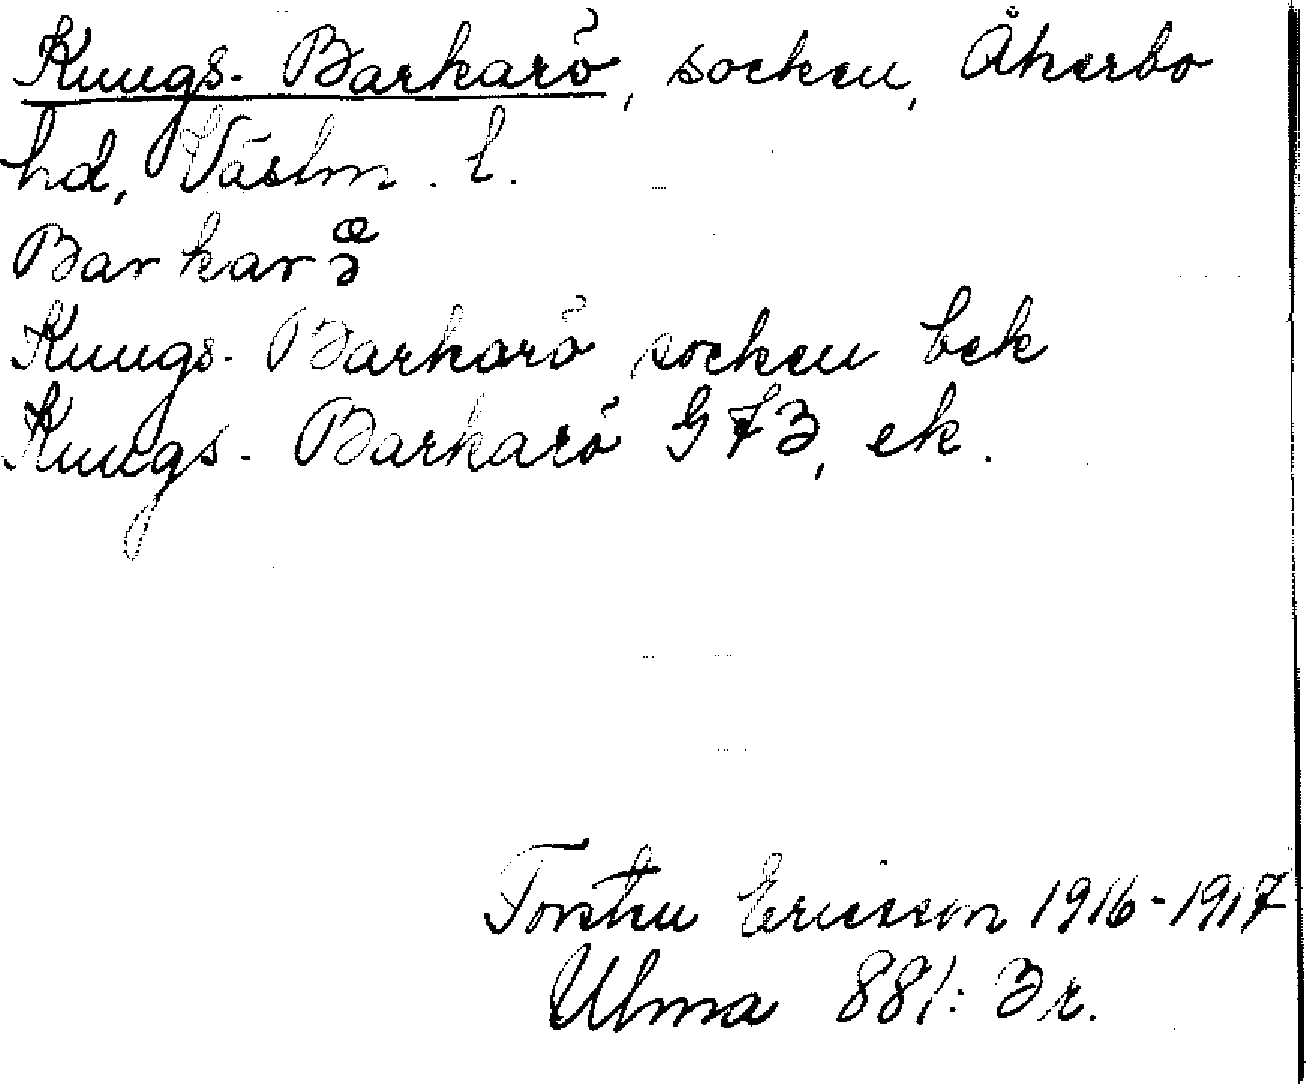 Kungs-Barkarö, socken, Åkerbo
hd, Västm. l.
Barkar
Kungs-Barkarö socken bek
Kungs-Barkarö G73, ek.
Torsten Ericsson 1916-1917
Ulma 881: 3 r.